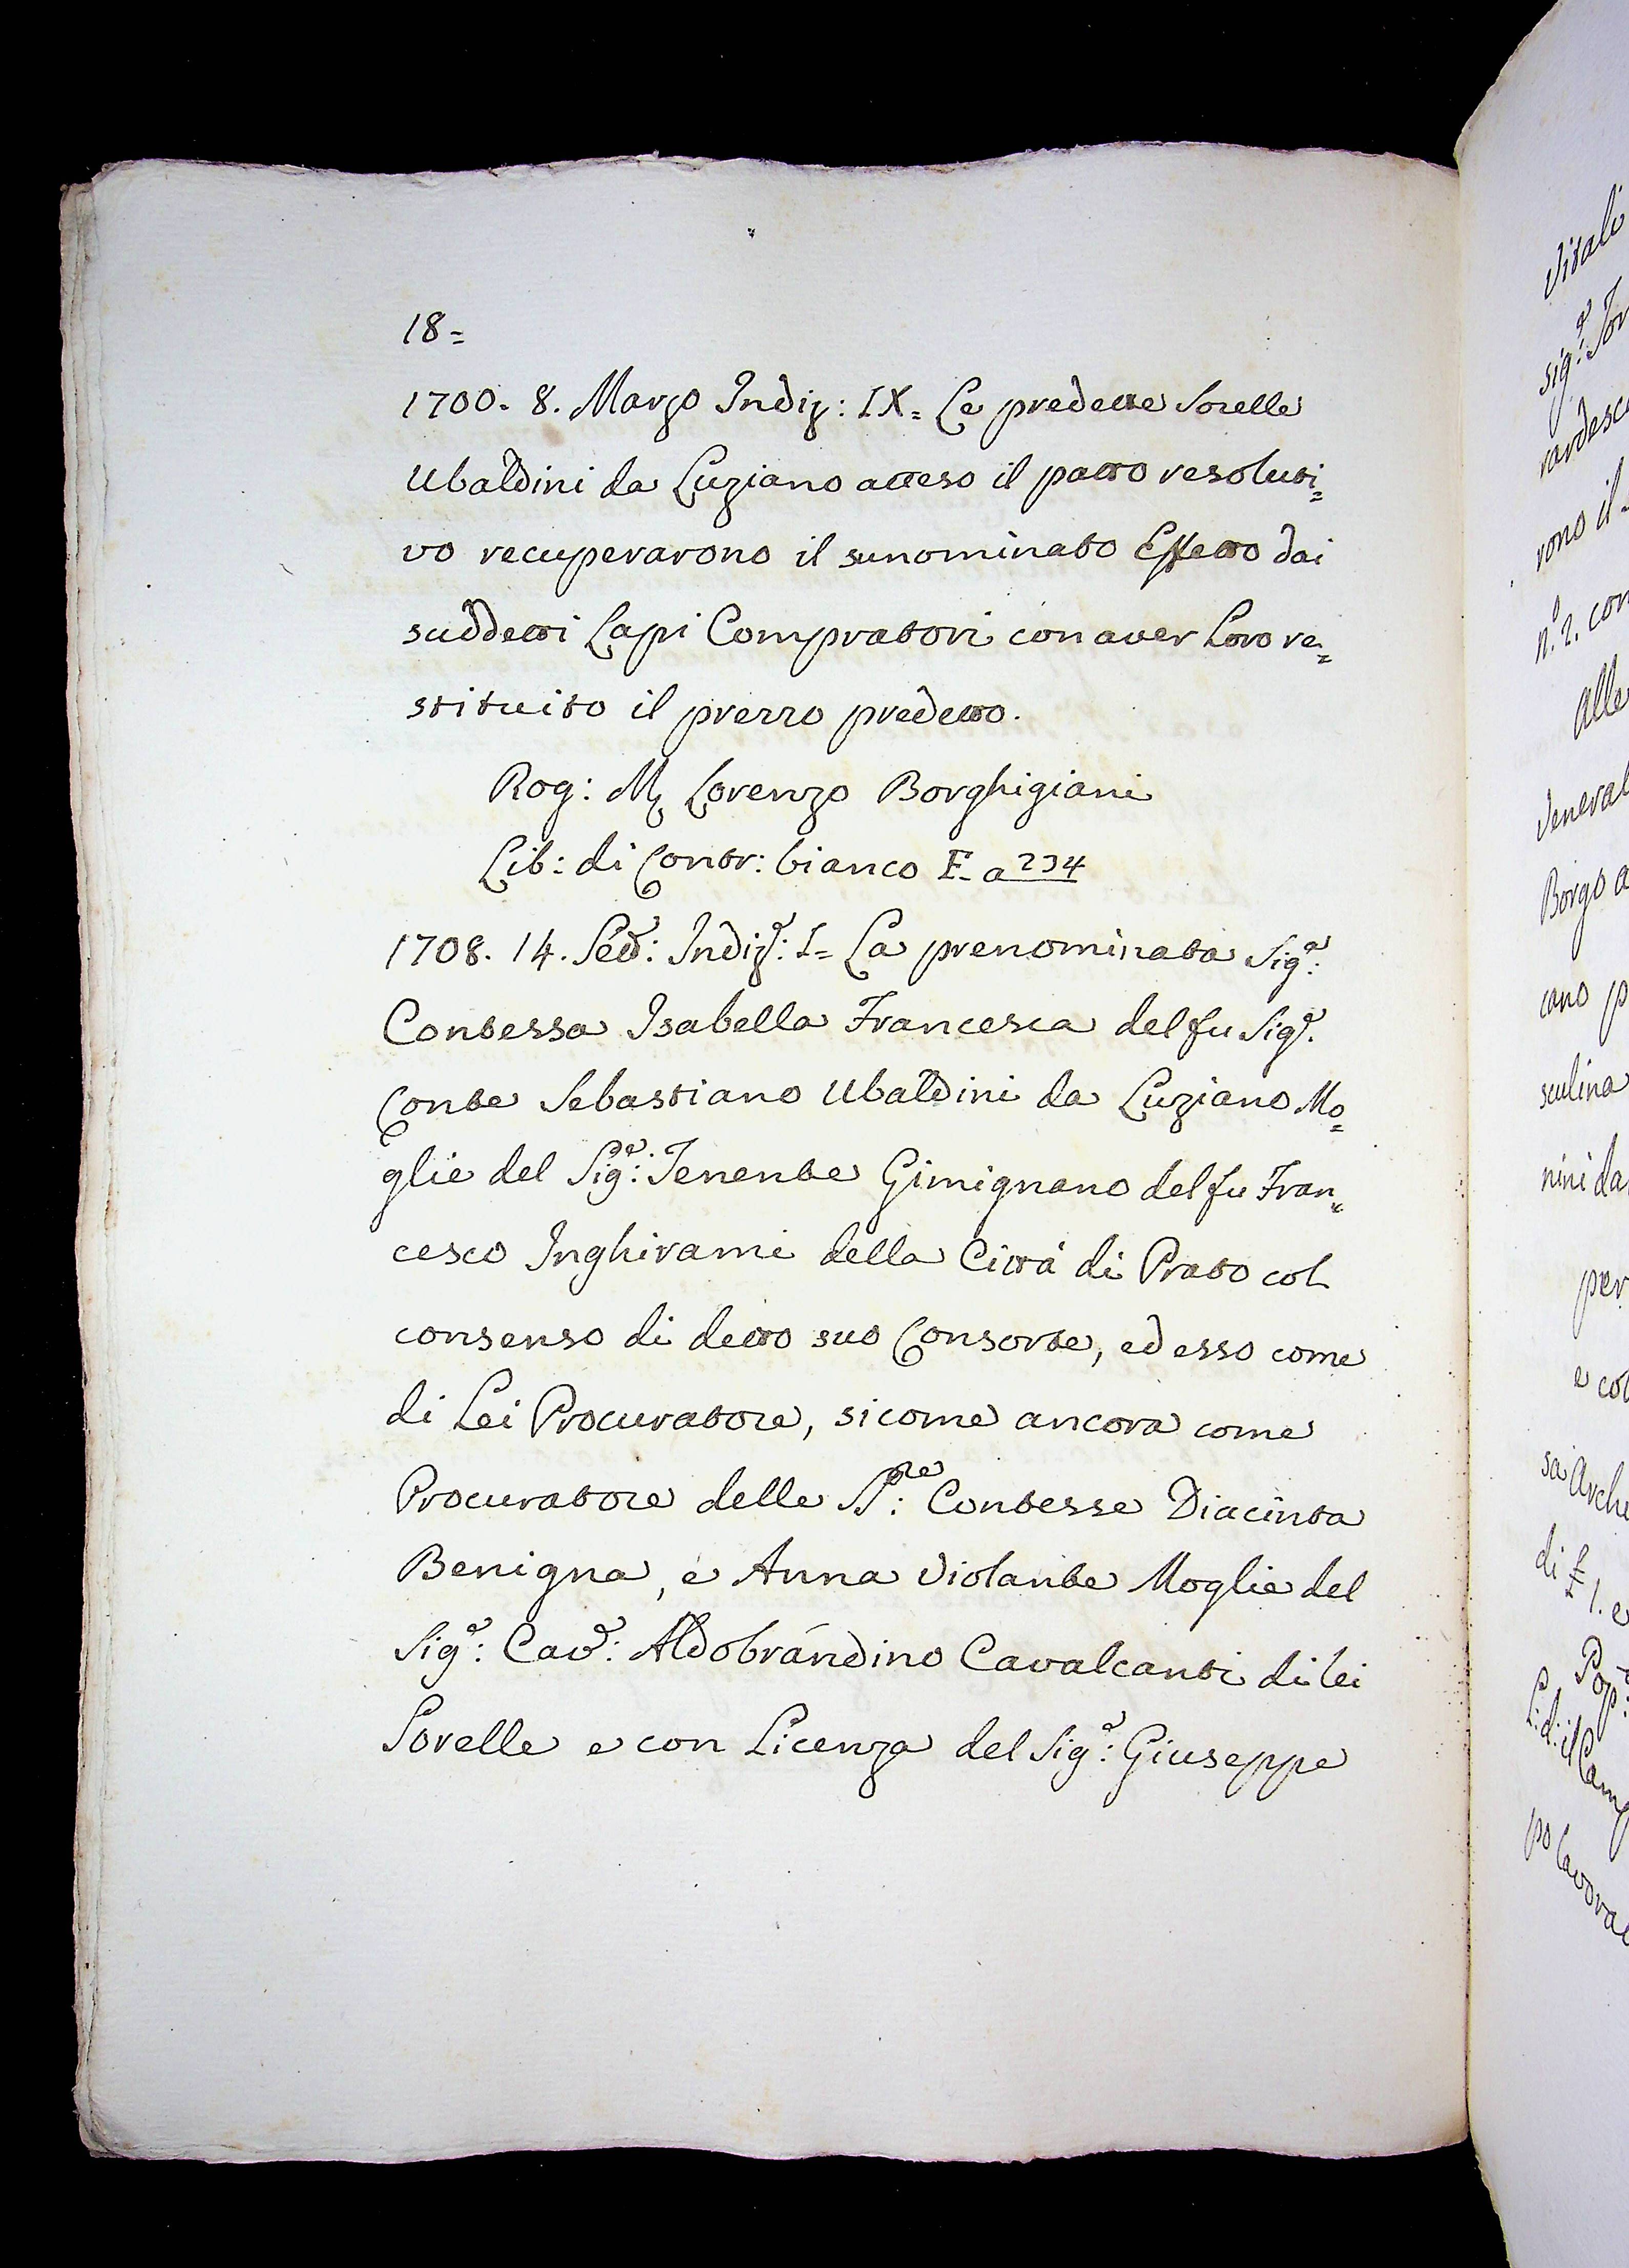 18=
1700. 8. Marzo Indiz: IX= Le predette Sorelle
Ubaldini da Luziano atteso il patto resoluti=
vo recuperarono il sunominato Effetto dai
suddetti Lapi Compratori con aver Loro re=
stituito il prezzo predetto.
Rog: M Lorenzo Borghigiani
Lib: di Contr: bianco E. a 234
1708. 14. Indiz.e: I= La prenominata Sig.a:
Contessa Isabella Francesca del fu Sig.e
Conte Sebastiano Ubaldini da Luziano Mo=
glie del Sig.e: Tenente Gimignano del fu Fran=
cesco Inghirami della Città di Prato col
consenso di detto suo Consorte, ed esso come
di Lei Procuratore, sicome ancora come
Procuratore delle SS.re: Contesse Diacinta
Benigna, e Anna Violante Moglie del
Sig.e: Cav.e: Aldobrandino Cavalcanti di lei
Sorelle e con Licenza del Sig.e: Giuseppe
Vitali
sig.e: Sor
rardesc
rono il
n.o 2. con
Alle
Veneral
Borgo a
cano p
sculina
nini da
per
e col
sa Arche
di £ 1. e
Pop:
L: d: il Camp
po Lavora